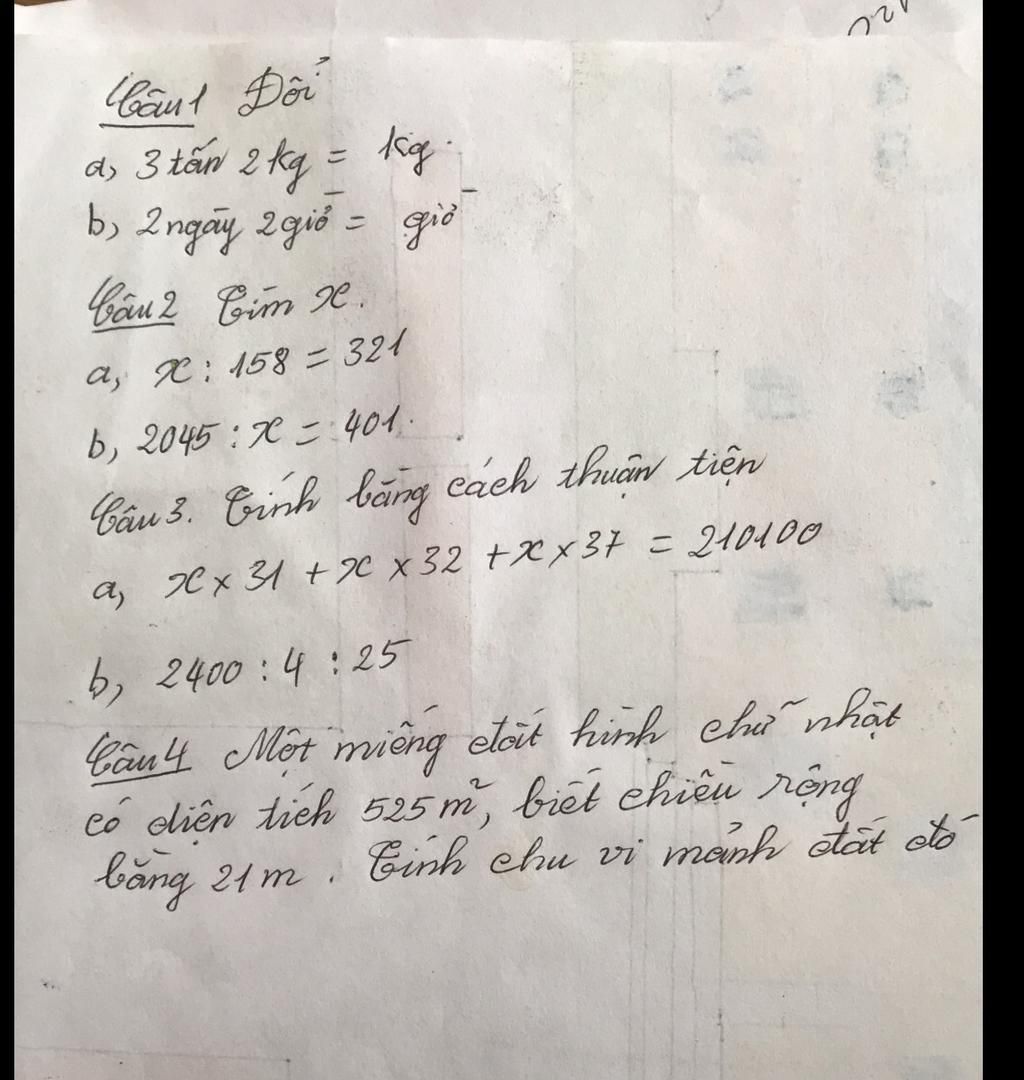 Câu 1 Đổi
a, 3 tấn 2 kg = kg.
b, 2 ngày 2 giờ = giờ
Câu 2 Tìm x.
a, x : 158 = 321
b, 2045 : x = 401.
Câu 3. Tính bằng cách thuận tiện
a, x × 31 + x × 32 + x × 37 = 210100
b, 2400 : 4 : 25
Câu 4 Một miếng đất hình chữ nhật
có diện tích 525 m², biết chiều rộng
bằng 21 m. Tính chu vi mảnh đất đó